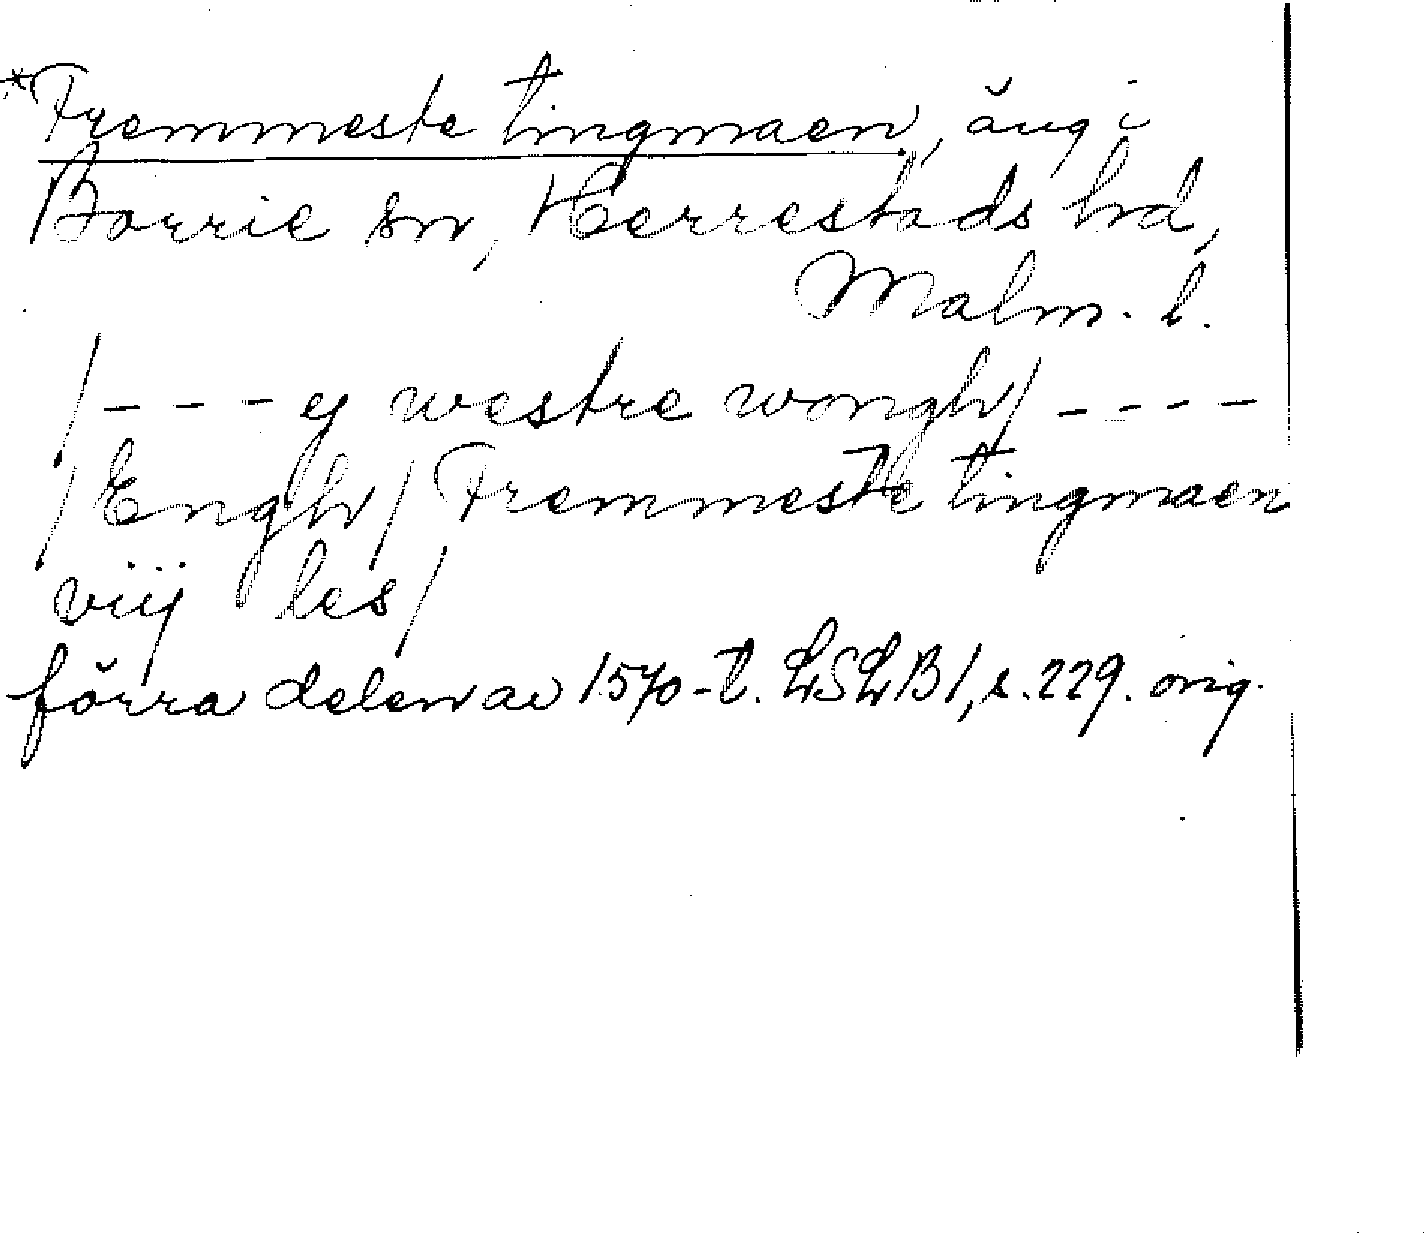 *Fremmeste tingmaen, äng i
Borrie sn, Herrestads hd,
Malm. l.
/- - - y westre wongh/ - - - -
/Engh/ Fremmeste tingmaen
viij les/
förra delen av 1570-t. LSLB1, s. 229. orig.